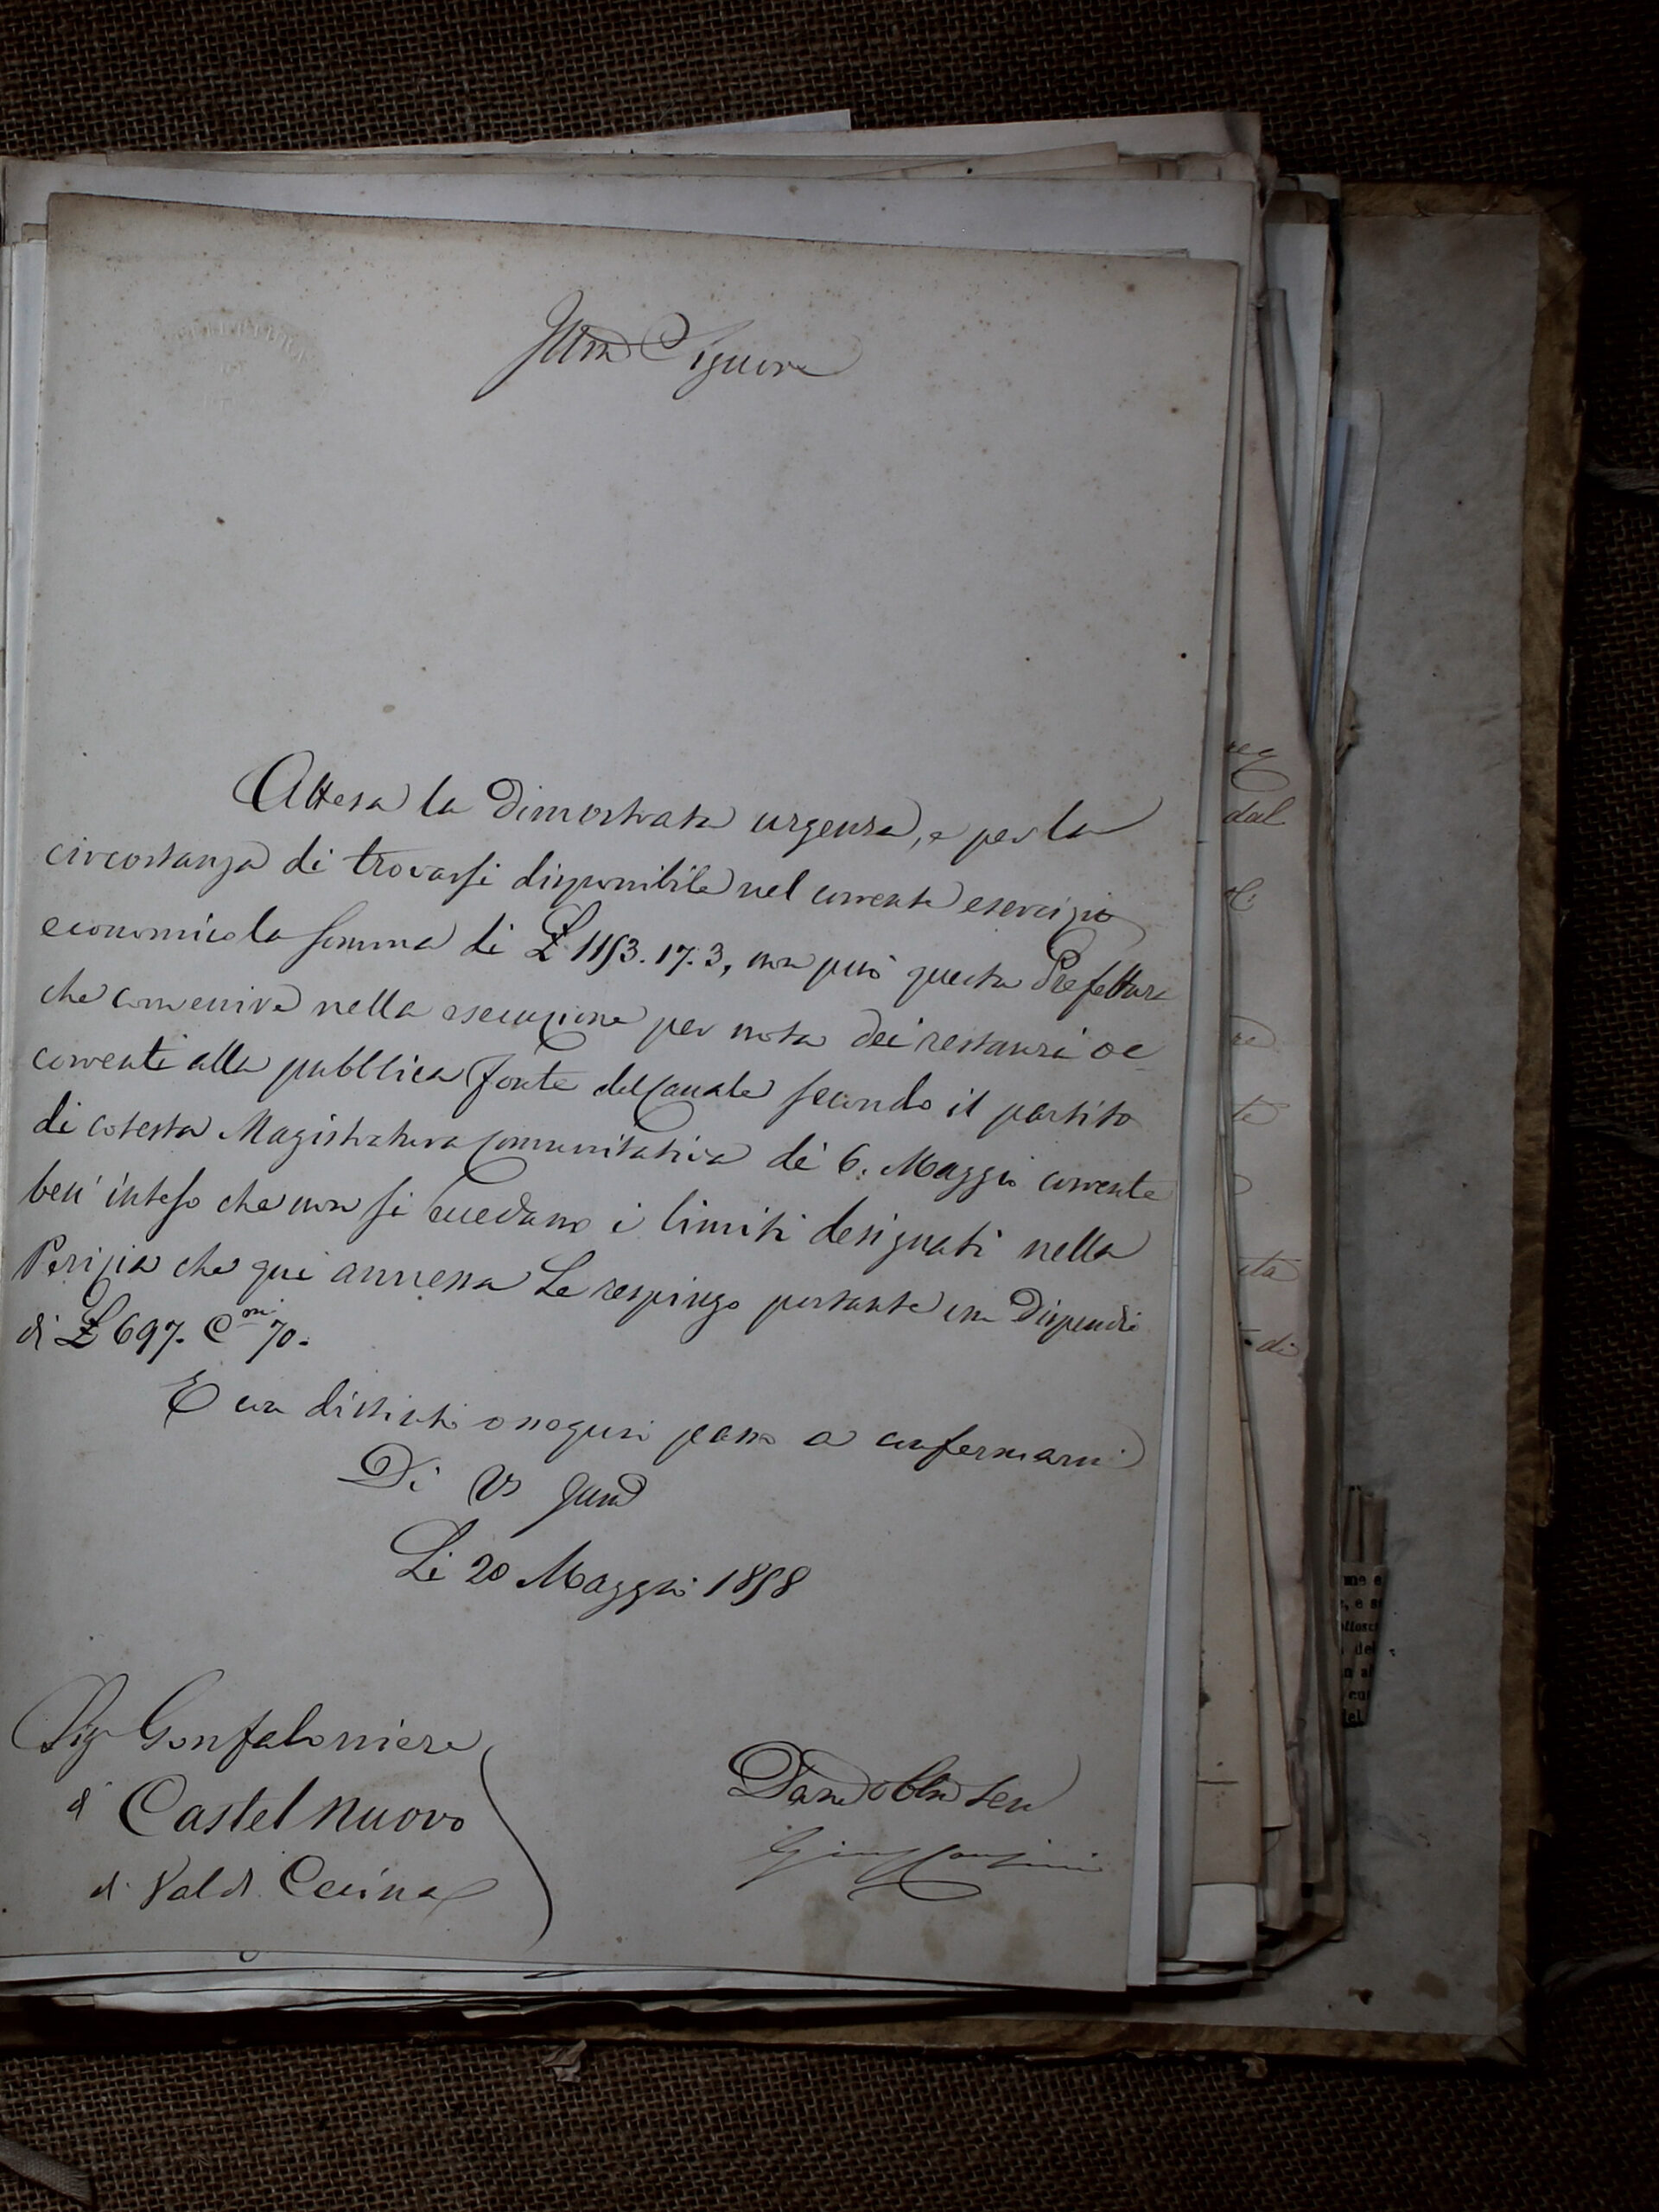 Illmo Signore
Attesa la dimostrata urgenza, e per la
circostanza di trovarsi disponibile nel corrente esercizio
economico la somma di £ 1153. 17. 3, non può questa Prefettura
che convenire nella esecuzione per nota dei restauri oc
correnti alla pubblica fonte del Canale secondo il partito
di cotesta Magistratura Comunitativa de' 6. Maggio corrente
ben' inteso che non si eccedano i limiti designati nella
Perizia che qui annessa Le respingo portante un dispendio
di £ 697. Cmi 70.
E con distinti ossequi passo a confermarmi
Di VS Illma
Li 20 Maggio 1858
Sig Gonfaloniere
di Castelnuovo
di Val di Cecina
Devmo Obblmo Serv
dal
te
di